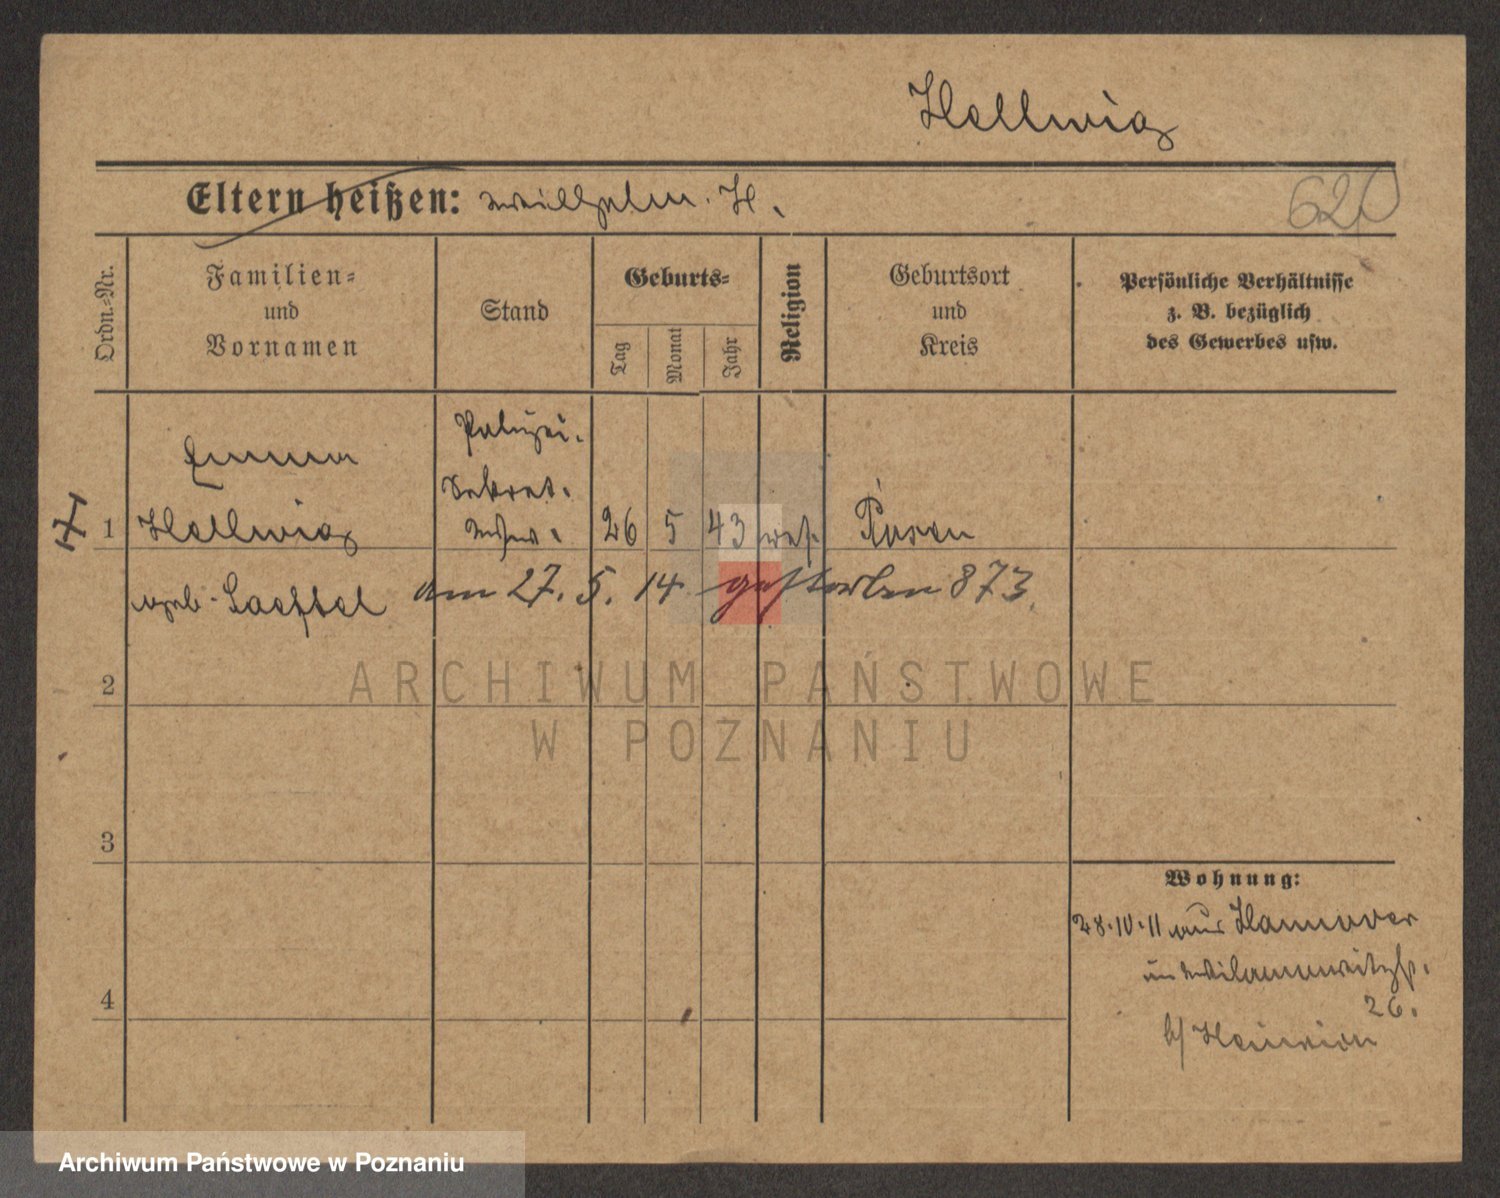 Hellwig
Eltern heißen: Wilhelm. H.
620
Ordn.-Nr.
Familien-
und
Vornamen
Stand
Geburts-
Tag
Monat
Jahr
Religion
Geburtsort
und
Kreis
Persönliche Verhältnisse
z. B. bezüglich
des Gewerbes usw.
Emma
Polizei.
Sekret.
1 Hellwig Wwe. 26 5 43 ev. Posen
geb. am 27. 5. 14 gestorben 873.
2
ARCHIWUM PAŃSTWOWE
W POZNANIU
3
Wohnung:
28.10.11 aus Hannover
in
26.
4
b/
Archiwum Państwowe w Poznaniu